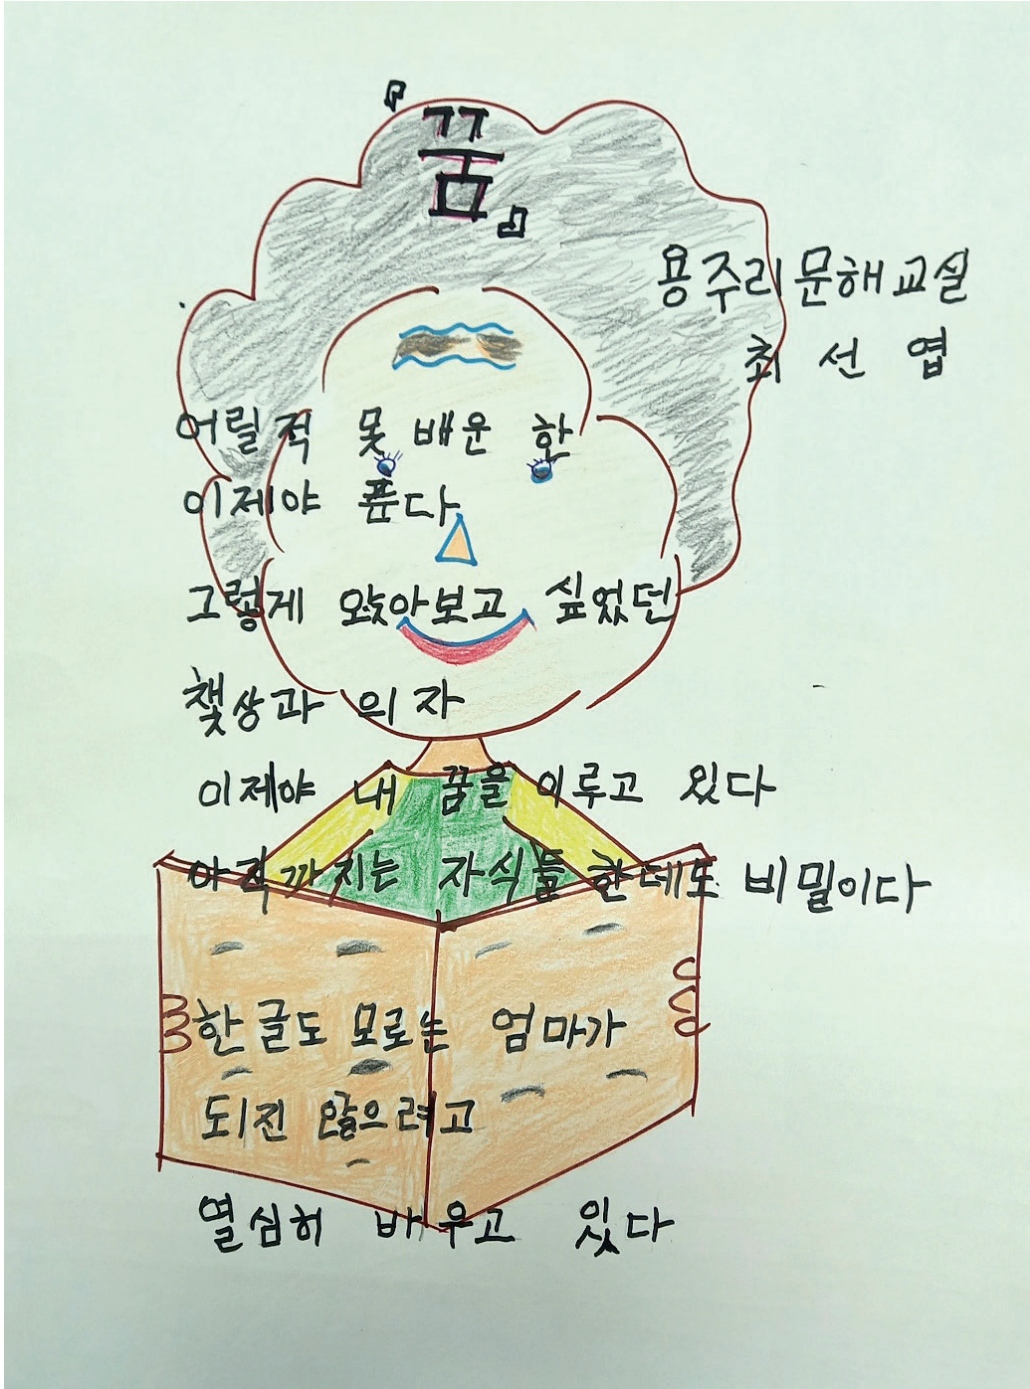 『꿈』
용주리문해교실
최선엽
어릴적 못 배운 한
이제야 푼다
그렇게 앉아보고 싶었던
책상과 의자
이제야 내 꿈을 이루고 있다
아직까지는 자식들 한데도 비밀이다
한글도 모로는 엄마가
되진 않으려고
열심히 배우고 있다